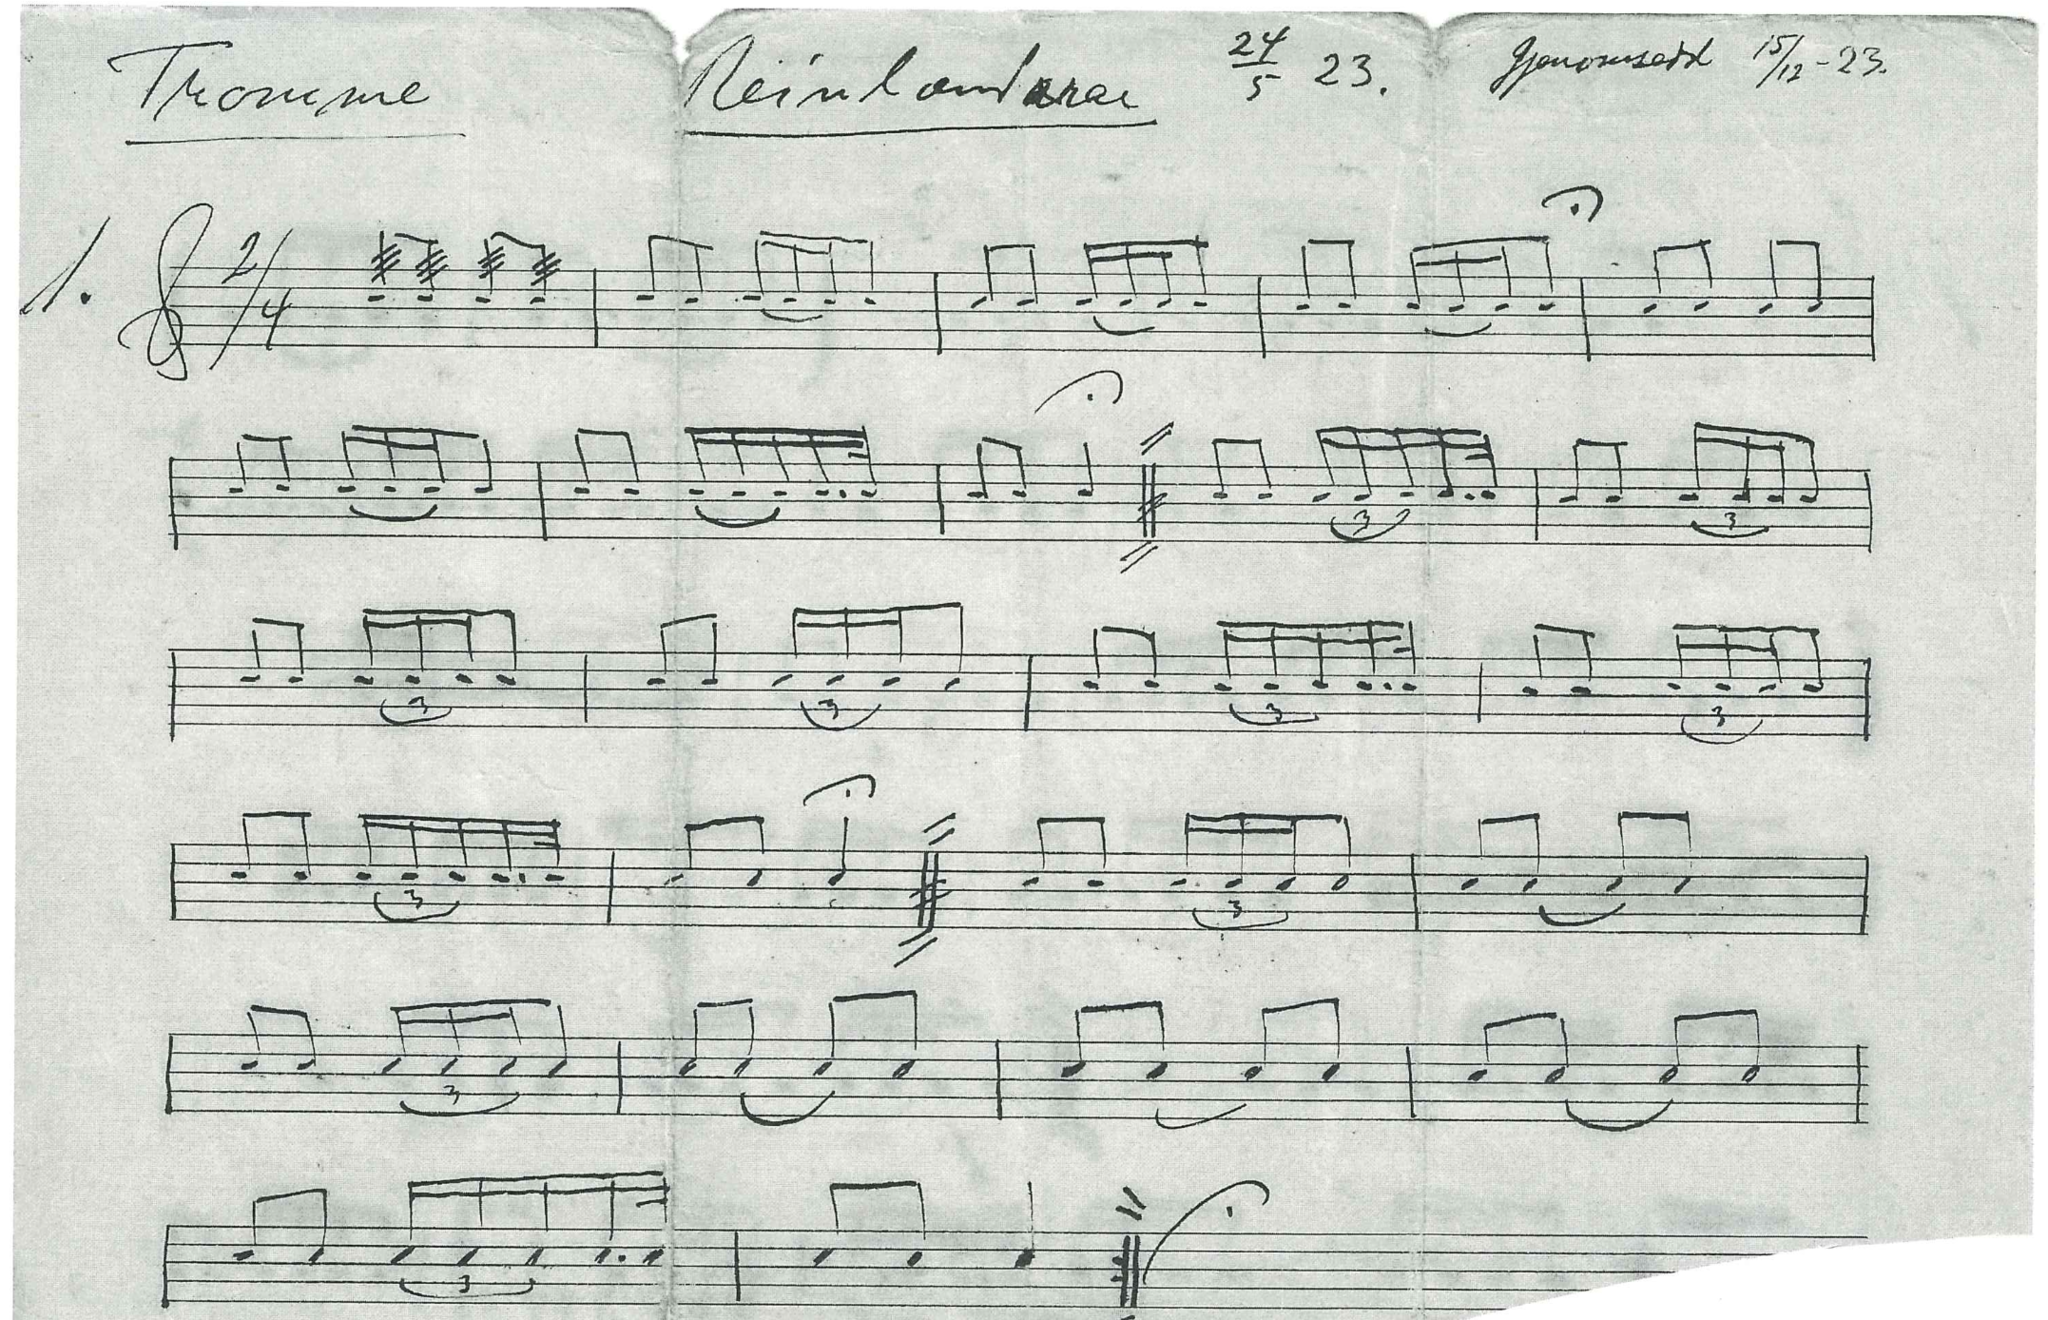 Tromme Reinlendarar 24/5 23. Gjenomsedd 15/12-23.
1. 2/4
3 3
3 3 3 3
3 3
3
3